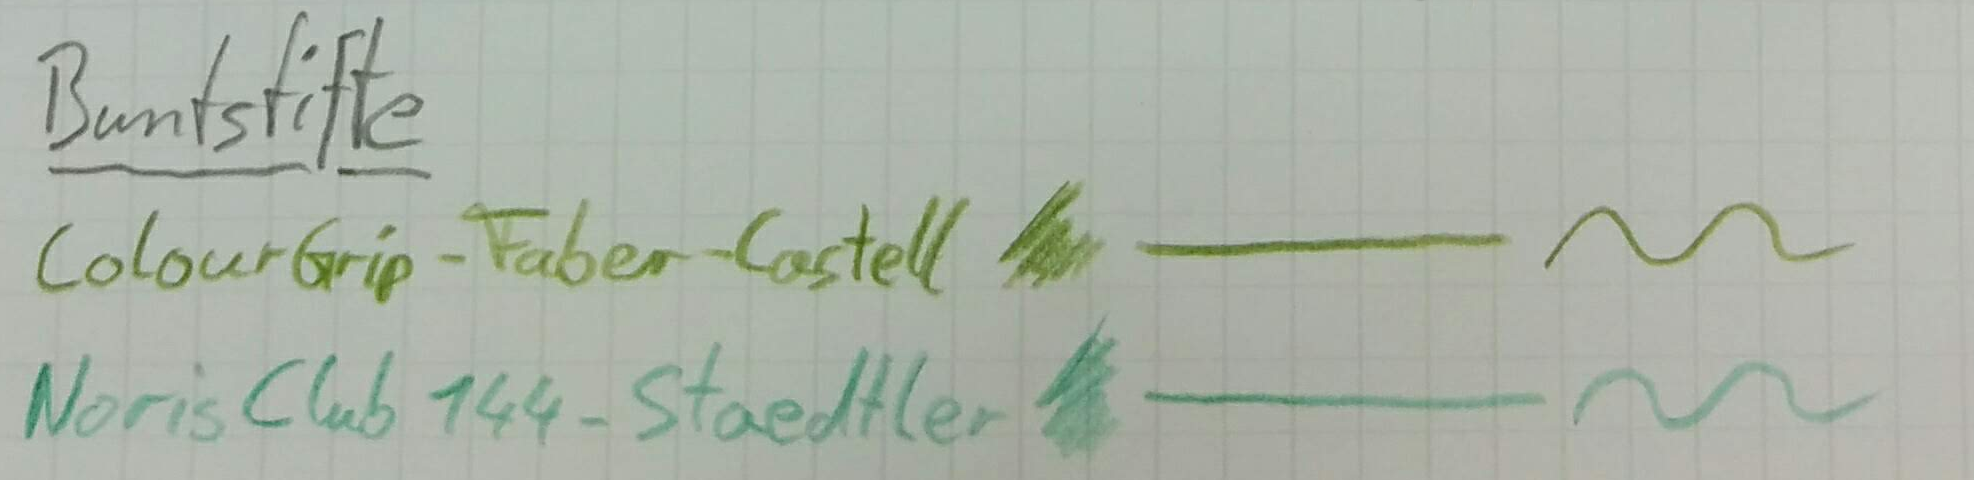 Buntstifte
Colour Grip - Faber-Castell
Noris Club 144 - Staedtler